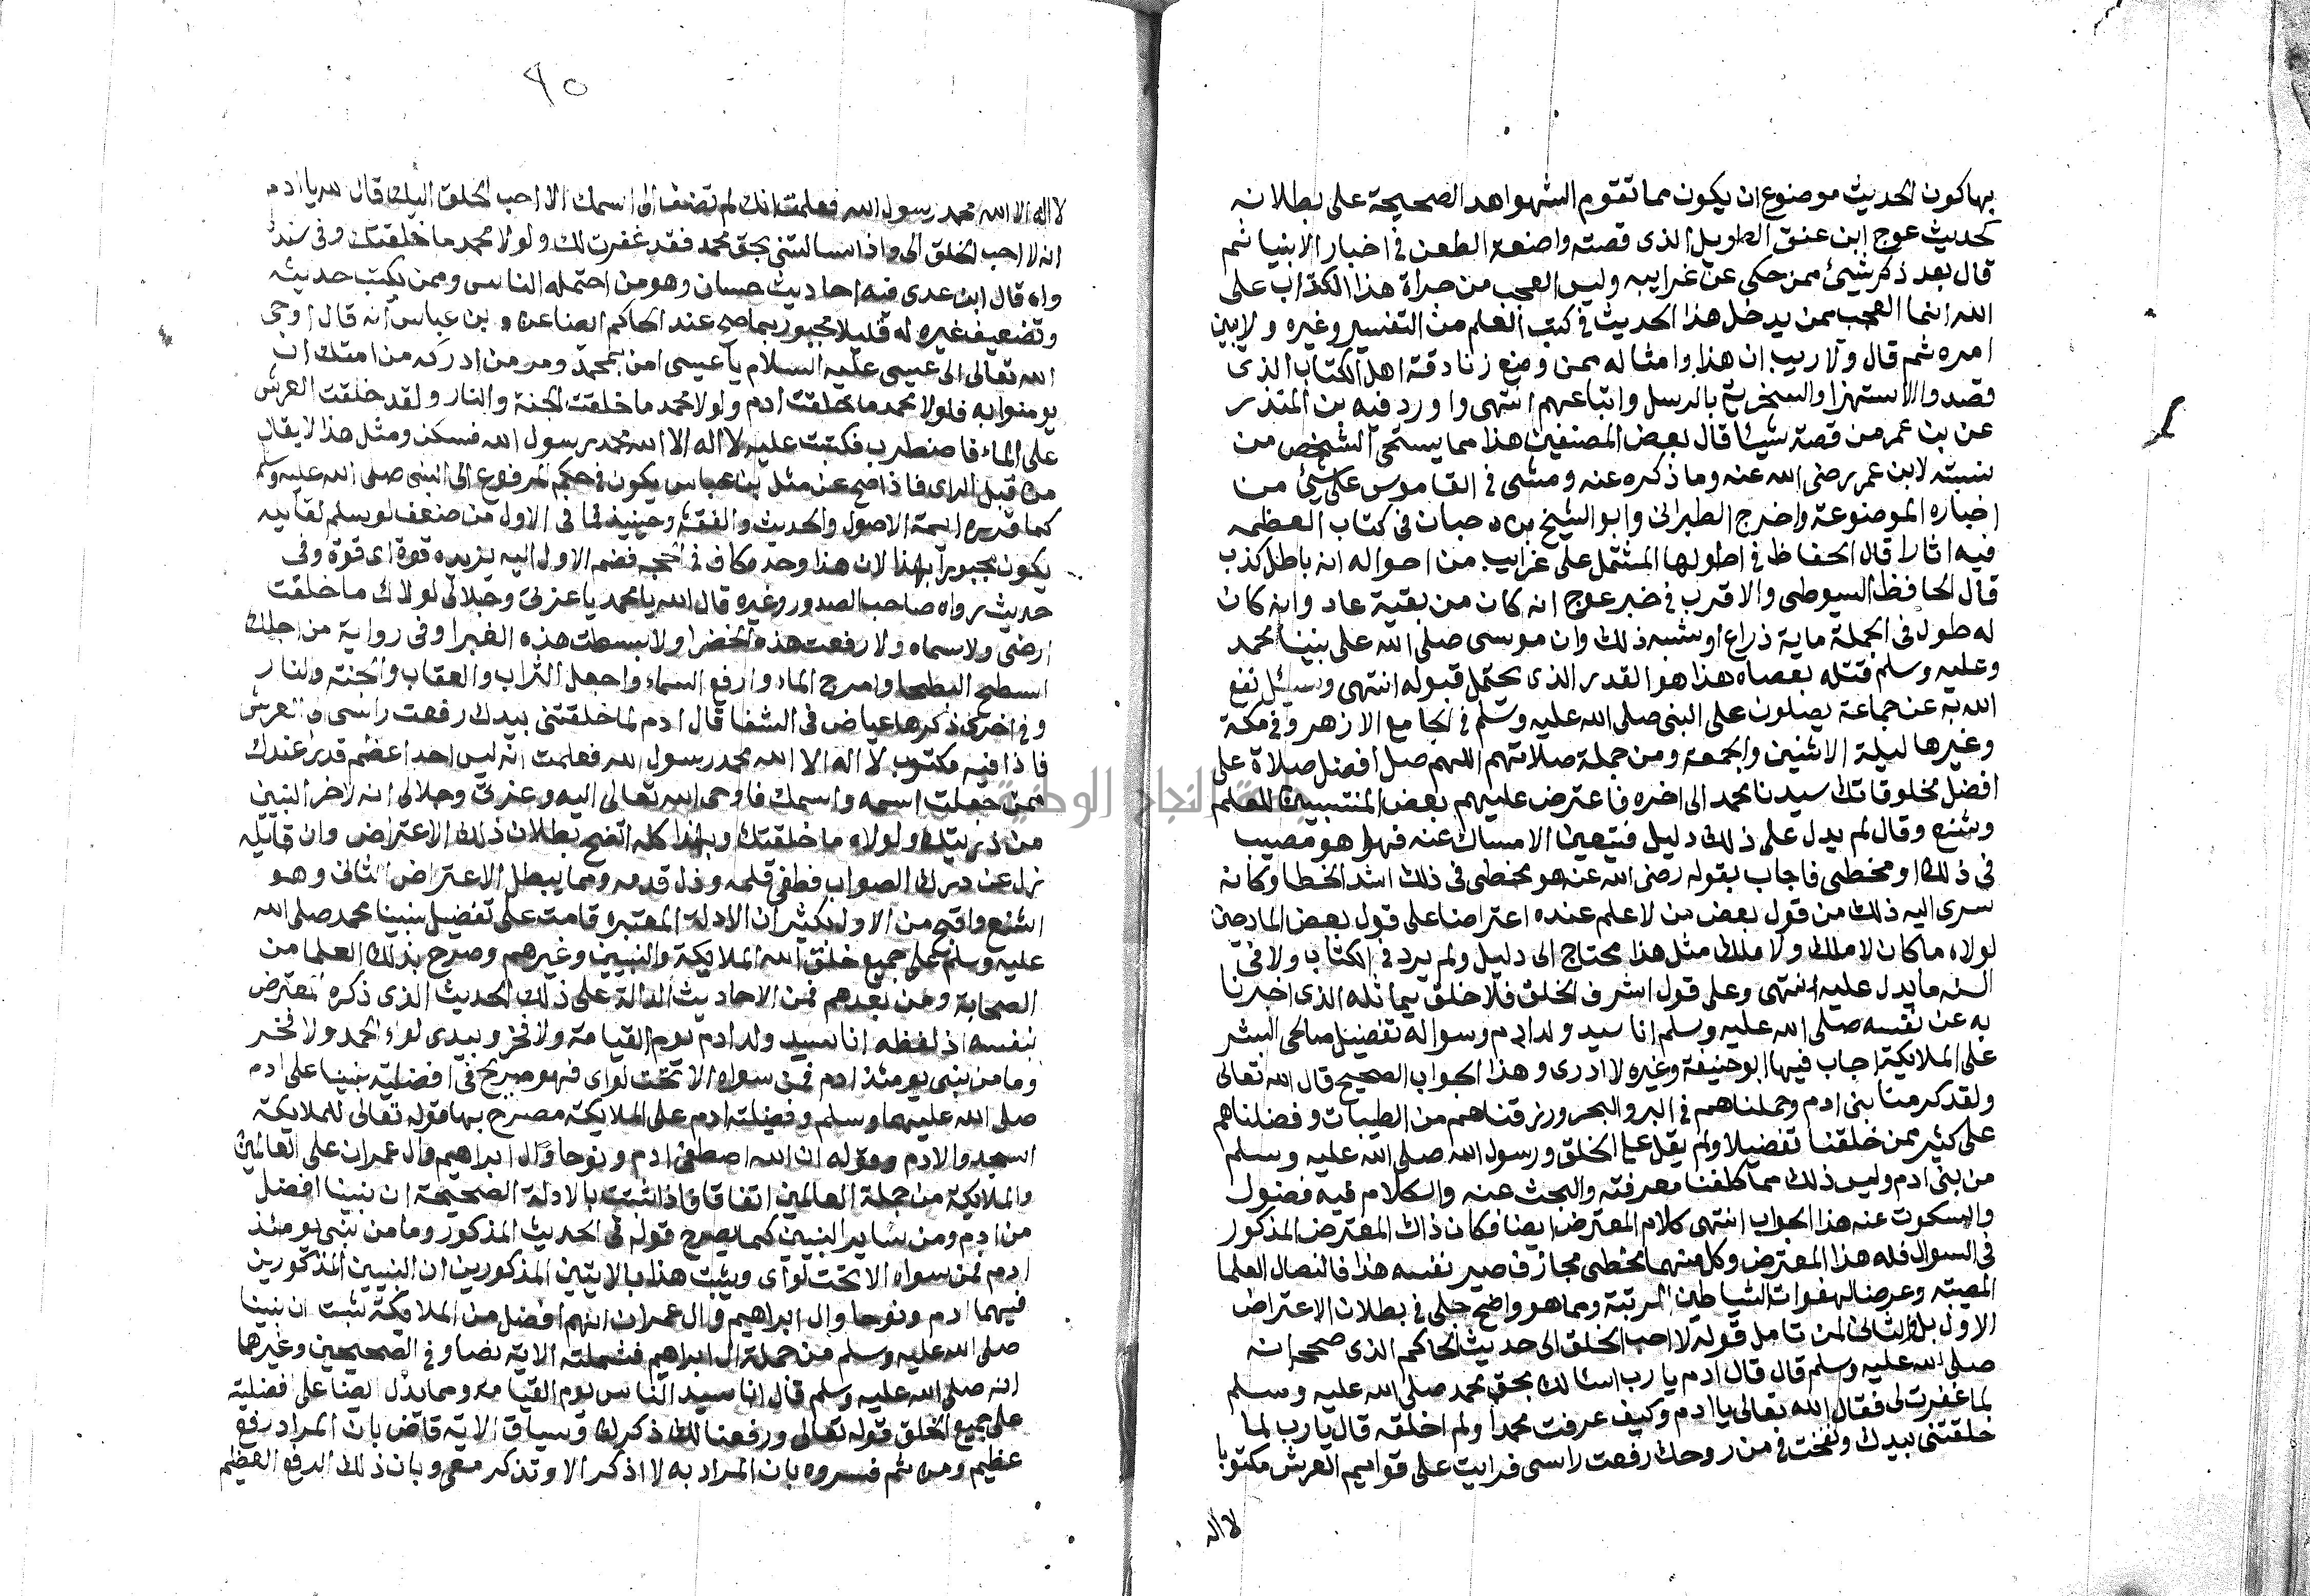 بها كون الحديث موضوع ان يكون مما تقوم الشواهد الصحيحة على بطلانه
كحديث عوج ابن عنق الطويل الذى قصته واضعه الطعن في اخبار الانبيا ثم
قال بعد ذكر شيئ ممن حكى عن غرايبه وليس العجب من جراة هذا الكذاب على
الله انما العجب ممن يدخل هذا الحديث في كتب العلم من التفسير وغيره ولا يبين
امره ثم قال ولا ريب ان هذا وامثاله ممن وضع زنادقة اهل الكتاب الذى
قصدوا الاستهزا والسخرية بالرسل واتباعهم انتهى واورد فيه بن المنذر
عن بن عمر من قصة شيئا قال بعض المصنفين هذا مما يستحى الشخص من
نسبته لابن عمر رضى الله عنه وما ذكره عنه ومشى في القاموس على شيئ من
اخباره الموضوعة واخرج الطبرانى وابو الشيخ بن حبان فى كتاب العظمه
فيه اثارا قال الحفاظ في اطولها المشتمل على غرايب من احواله انه باطل كذب
قال الحافظ السيوطى والاقرب في خبر عوج انه كان من بقية عاد وانه كان
له طول في الجملة ماية ذراع او شبه ذلك وان موسى صلى الله على نبينا محمد
وعليه وسلم قتله بعصاه هذا هو القدر الذى يحتمل قبوله انتهى وسئل نفع
الله به عن جماعة يصلون على النبى صلى الله عليه وسلم في الجامع الازهر وفي مكة
وغيرها ليلة الاثنين والجمعة ومن جملة صلاتهم اللهم صل افضل صلاة على
افضل مخلوقاتك سيدنا محمد الى اخره فاعترض عليهم بعض المنتسبين للعلم
وشنع وقال لم يدل على ذلك دليل فتيعين الامساك عنه فهل هو مصيب
في ذلك او مخطى فاجاب بقوله رضى الله عنه هو مخطى في ذلك اشد الخطا وكانه
سرى اليه ذلك من قول بعض من لا علم عنده اعتراضا على قول بعض المادحين
لولاه ما كان لا ملك ولا ملك مثل هذا محتاج الى دليل ولم يرد في الكتاب ولا في
السنه ما يدل عليه انتهى وعلى قول اشرف الخلق فلا خلق يماثله الذى اخبرنا
به عن نفسه صلى الله عليه وسلم انا سيد ولد ادم وسواله تفضيل صالحى البشر
على الملايكة اجاب فيها ابو حنيفة وغيره لا ادرى وهذا الجواب الصحيح قال الله تعالى
ولقد كرمنا بنى ادم وحملناهم في البر والبحر ورزقناهم من الطيبات وفضلناهم
على كثير ممن خلقنا تفضيلا ولم يقل على الخلق ورسول الله صلى الله عليه وسلم
من بنى ادم وليس ذلك مما كلفنا معرفته والبحث عنه والكلام فيه فضول
والسكوت عنه هذا الجواب انتهى كلام المعترض ايضا فكان ذاك المعترض المذكور
في السوال قلد هذا المعترض وكل منهما مخطى مجازف صير نفسه هذفا لنصال العلما
المصيته وعرضا لهفوات الشياطين المرتبة ومما هو واضح جلى في بطلان الاعتراض
الاول بل والثانى لمن تامل قوله لاحب الخلق الى حديث الحاكم الذى صححه انه
صلى الله عليه وسلم قال قال ادم يا رب اسالك بحق محمد صلى الله عليه وسلم
لما غفرت لى فقال الله تعالى يا ادم وكيف عرفت محمدا ولم اخلقه قال يا رب لما
خلقتنى بيدك ونفخت في من روحك رفعت راسى فرايت على قوايم العرش مكتوبا
لا اله
٩٥
لا اله الا الله محمد رسول الله فعلمت انك لم تضف الى اسمك الا احب الخلق اليك قال الله يا ادم
انه لاحب الخلق الى واذا سالتنى بحق محمد فقد غفرت لك ولولا محمد ما خلقتك وفى سنده
واه قال ابن عدى فيه احاديث حسان وهو من احتمله الناس وممن يكتب حديثه
وتضعيف غيره له قليلا مجبور بما صح عند الحاكم ايضا عن بن عباس انه قال اوحى
الله تعالى الى عيسى عليه السلام يا عيسى امن بمحمد ومر من ادركه من امتك ان
يومنوا به فلولا محمد ما خلقت ادم ولولا محمد ما خلقت الجنة والنار ولقد خلقت العرش
على الماء فاضطرب فكتبت عليه لا اله الا الله محمد رسول الله فسكن ومثل هذا لا يقال
من قبل الراى فاذا صح عن مثل بن عباس يكون في حكم المرفوع الى النبى صلى الله عليه وسلم
كما قرره ايمة الاصول والحديث والفقه وحينيذ فما في الاول من ضعف لو سلم لقايله
يكون مجبورا بهذا لان هذا وحده كاف في الحجه فضم الاول اليه يزيده قوة اى قوة وفى
حديث رواه صاحب الصدور وغيره قال الله يا محمد يا عزتى وجلالى لولاك ما خلقت
ارضى ولا سماء ولا رفعت هذه الخضرا ولا بسطت هذه الغبرا وفى رواية من اجلك
اسطح البطحا وامرج الماء وارفع السماء واجعل الثراب والعقاب والجنته والنار
وفى اخرى ذكرها عياض فى الشفا قال ادم لما خلقتنى بيدك رفعت راسى الى العرش
فاذا فيه مكتوب لا اله الا الله محمد رسول الله فعلمت انه ليس احد اعظم قدرا عندك
ممن جعلت اسمه واسمك فاوحى الله تعالى اليه وعزتى وجلالى انه لاخر النبيين
من ذريتك ولولاه ما خلقتك وبهذا كله اتضح بطلان ذلك الاعتراض وان قايله
زل عن درك الصواب فطغى قلمه وذل قدمه ومما يبطل الاعتراض الثانى وهو
اشنع واقبح من الاول بكثير ان الادلة المعتبره قامت على تفضيل نبينا محمد صلى الله
عليه وسلم على جميع خلق الله الملايكة والنبيين وغيرهم وصرح بذلك العلما من
الصحابة ومن بعدهم فمن الاحاديث الدالة على ذلك الحديث الذى ذكره المعترض
بنفسه اذ لفظه انا سيد ولد ادم يوم القيامة ولا فخر وبيدى لواء الحمد ولا فخر
وما من نبى يومئذ ادم فمن سواه الا تحت لواى فهو صريح في افضلية نبينا على ادم
صلى الله عليهما وسلم وفضيلته ادم على الملايكة مصرح بها قوله تعالى للملايكة
اسجدوا لادم وقوله ان الله اصطفى ادم ونوحا وال ابراهيم وال عمران على العالمين
والملايكة من جملة العالمين اتفاقا فاذا ثبت بالادلة الصحيحة ان نبينا افضل
من ادم ومن ساير النبيين كما يصرح قوله في الحديث المذكور وما من نبى يومئذ
ادم فمن سواه الا تحت لواى ويثبت هذا بالايتين المذكورين ان النبيين المذكورين
فيهما ادم ونوحا وال ابراهيم وال عمران انهم افضل من الملايكة يثبت ان نبينا
صلى الله عليه وسلم من جملة ال ابراهيم فشملته الاية نصا وفي الصحيحين وغيرها
انه صلى الله عليه وسلم قال انا سيد الناس يوم القيامة ومما يدل ايضا على افضليته
على جميع الخلق قوله تعالى ورفعنا لك ذكرك وسياق الاية قاض بان المراد رفع
عظيم ومن ثم فسروه بان المراد به لا اذكر الا وتذكر معى وبان ذلك الرفع العظيم